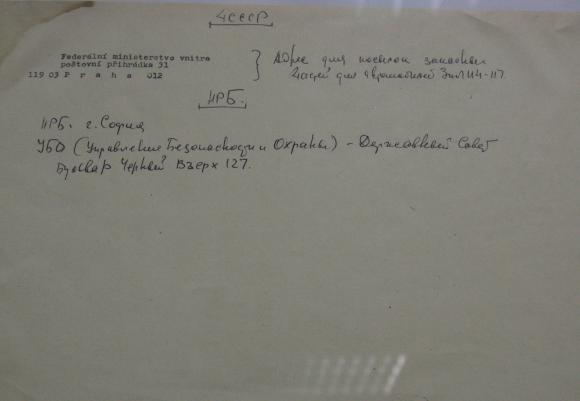 ЧССР
Federální ministerstvo vnitra
poštovní přihrádka 31
119 03 P r a h a 012
Адрес для посылок запасных
частей для автомобилей ЗИЛ 114-117.
НРБ.
НРБ. г. София
УБО (Управление Безопасности и Охраны) – Державный Совет
Бульвар Черный Взерх 127.